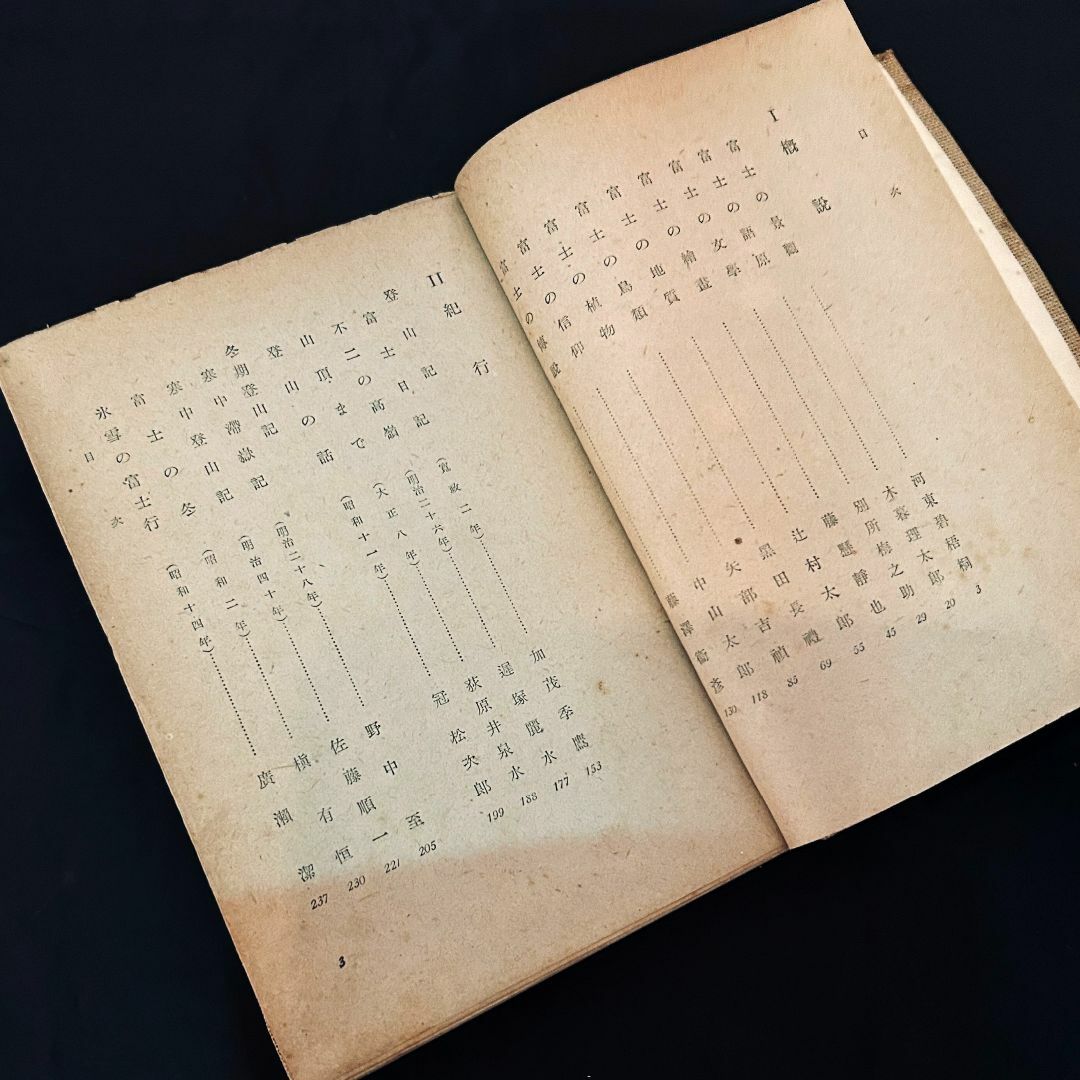 目次
I 概説
富士の景觀……河東碧梧桐 3
富士の語原……木暮理太郎 20
富士の文學……別所梅之助 29
富士の繪畫……藤懸靜也 45
富士の地質……辻村太郎 55
富士の鳥類……黒田長禮 69
富士の植物……矢部吉禎 85
富士の信仰……中山太郎 118
富士の傳説……藤澤衞彥 130
II 紀行
登山記
富士日記(寬政二年)……加茂季鷹 153
不二の高嶺(明治二十六年)……遲塚麗水 177
山頂まで(大正八年)……荻原井泉水 188
登山の話(昭和十一年)……冠松次郎 199
冬期登山記
寒中滯嶽記(明治二十八年)……野中至 205
寒中登山記(明治四十年)……佐藤順一 221
富士の冬(昭和二年)……槇有恒 230
氷雪の富士行(昭和十四年)……廣瀨潔 237
目次
3